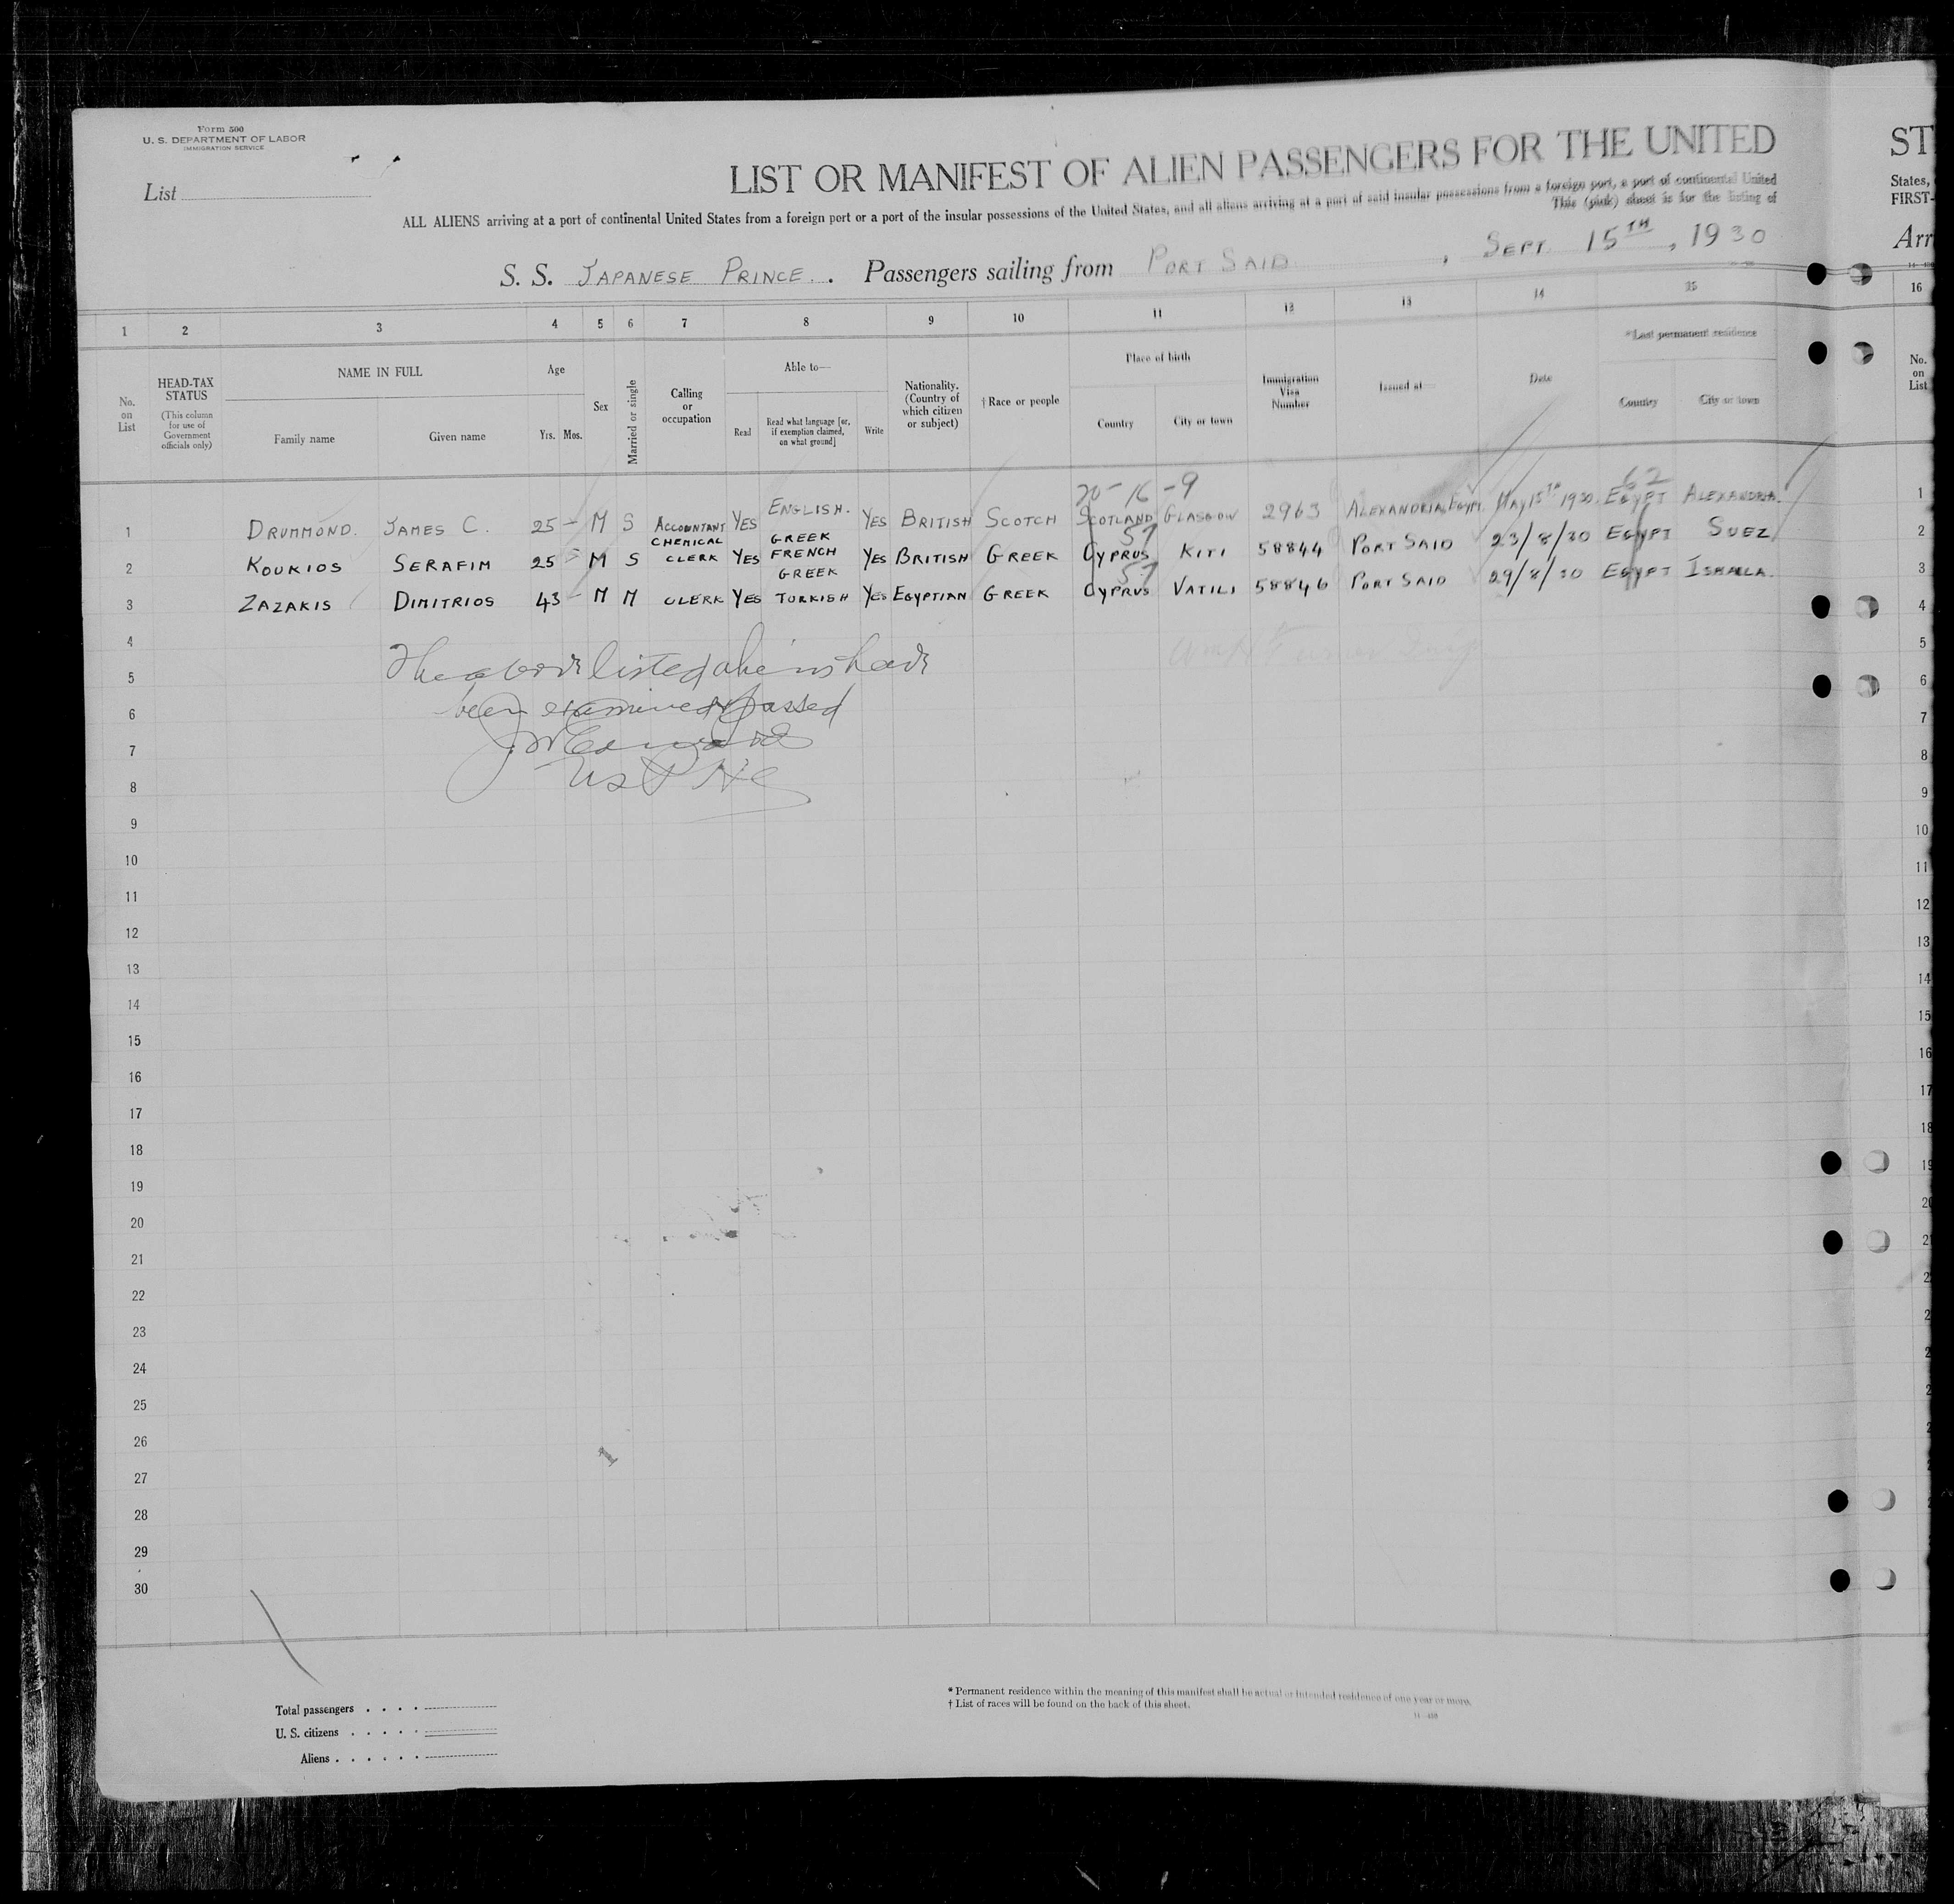 Form 500
U. S. DEPARTMENT OF LABOR
IMMIGRATION SERVICE
List
LIST OR MANIFEST OF ALIEN PASSENGERS FOR THE UNITED
ST
ALL ALIENS arriving at a port of continental United States from a foreign port or a part of the insular possessions of the United States, and all aliens arriving at a port of said insular possessions from a foreign port, a port of continental United
States,
This (pink) sheet is for the listing of
FIRST-
S. S. JAPANESE PRINCE. Passengers sailing from PORT SAID, SEPT. 15TH, 1930
Arr
1 2 3 4 5 6 7 8 9 10 11 12 13 14 15 16
No. on List
HEAD-TAX STATUS
(This column for use of Government officials only)
NAME IN FULL
Family name
Given name
Age
Yrs. Mos.
Sex
Married or single
Calling or occupation
Able to—
Read
Read what language [or, if exemption claimed, on what ground]
Write
Nationality. (Country of which citizen or subject)
† Race or people
Place of birth
Country
City or town
Immigration Visa Number
Issued at—
Date
*Last permanent residence
Country
City or town
No. on List
20-16-9
62
1 DRUMMOND. JAMES C. 25 - M S ACCOUNTANT YES ENGLISH. YES BRITISH SCOTCH SCOTLAND GLASGOW 2963 ALEXANDRIA EGYPT. MAY 15TH 1930. EGYPT ALEXANDRIA. 1
57
2 KOUKIOS SERAFIM 25 M S CHEMICAL CLERK YES GREEK FRENCH YES BRITISH GREEK CYPRUS KITI 58844 PORT SAID 23/8/30 EGYPT SUEZ 2
57
3 ZAZAKIS DIMITRIOS 43 - M M CLERK YES GREEK TURKISH YES EGYPTIAN GREEK CYPRUS VATILI 58846 PORT SAID 29/8/30 EGYPT ISMAILA. 3
4
The above listed aliens have
5
been examined & passed
6
J W Edwards
7
USPHS
8
9
10
11
12
13
14
15
16
17
18
19
20
21
22
23
24
25
26
27
28
29
30
1
Total passengers
U. S. citizens
Aliens
* Permanent residence within the meaning of this manifest shall be actual or intended residence of one year or more.
† List of races will be found on the back of this sheet.